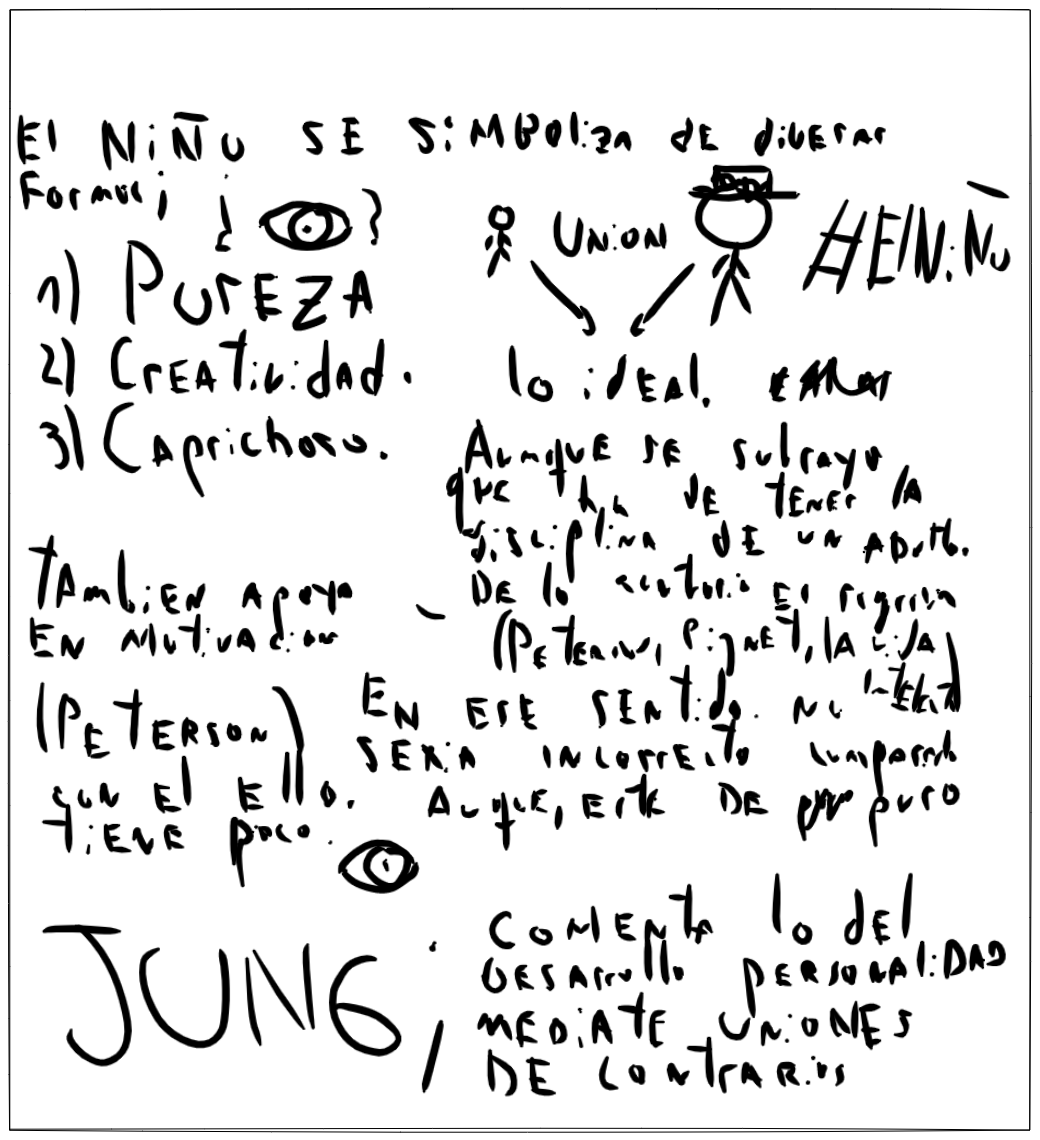 El NiÑo SE SiMBoliza DE diversas
Formas;
¿ ?
1) PurEZA
2) CrEAtividad.
3) CAprichoso.
UNioN
#ElNiÑo
lo idEAl.
AunquE SE subraya
quE ha DE TENEr lA
disciplina DE un ADulto.
DE lo contrario Es
(PETErson, PiagET, lA
TAmbiEN Apoya
EN Motivacion
(PETERSON)
EN ESE SENtido. No
SERiA INcorrEcto compararlo
con El Ello. AuquE, EstE DE puro
tiENE poco.
JUNG;
COMENTA lo dEl
DESArrollo PERSONAliDAD
MEDiATE UNiONES
DE CONTrARios